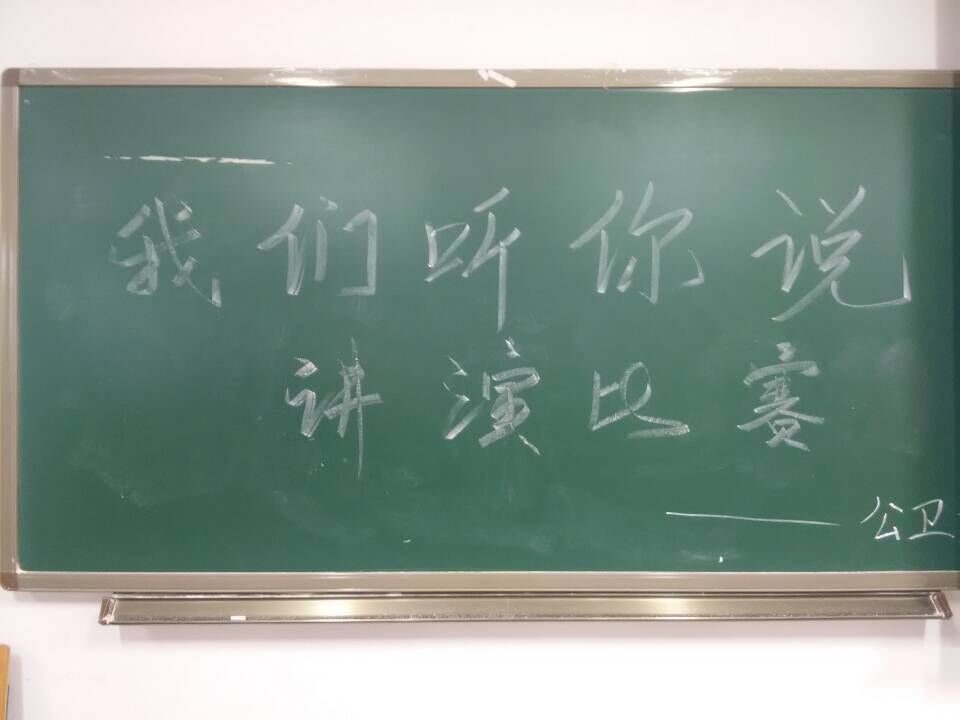 我们听你说
讲演比赛
——公卫